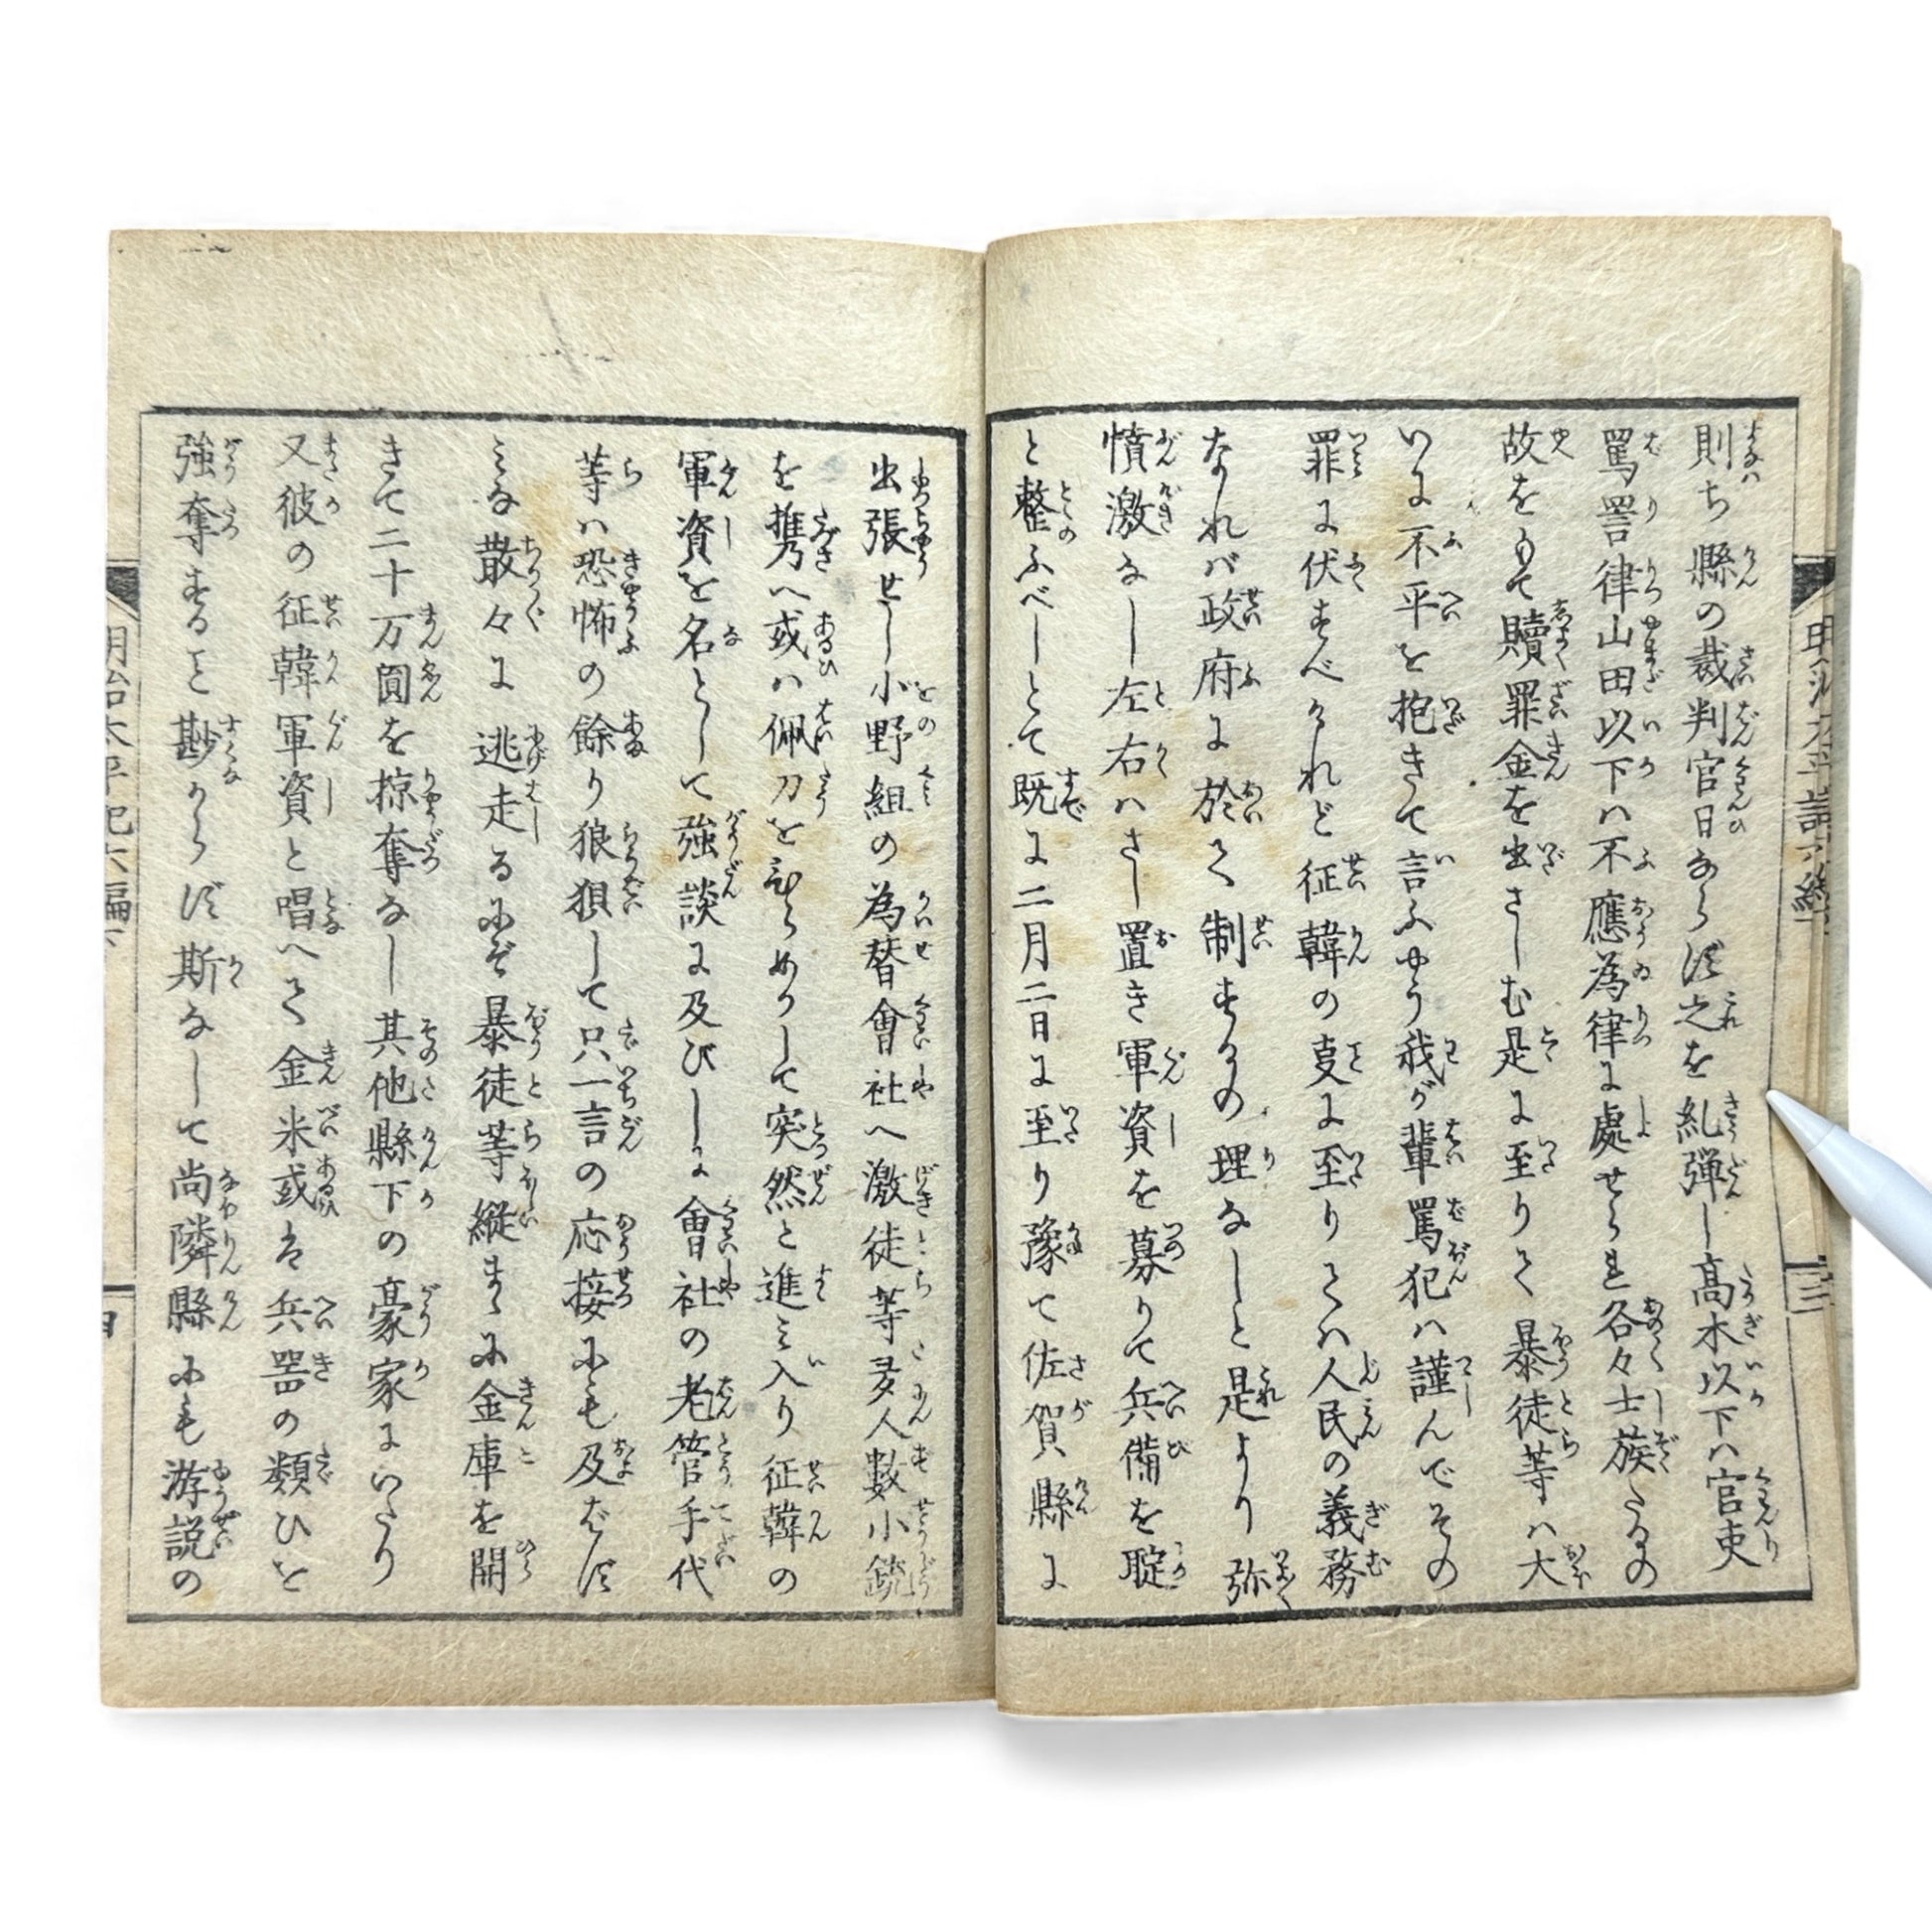 則ち縣の裁判官日あらず之を糺弾し高木以下ハ官吏
罵詈律山田以下ハ不應為律に處せられ各々士族たるの
故をもて贖罪金を出さしむ是に至りて暴徒等ハ大
いに不平を抱きて言ふやう我が輩罵犯ハ謹んでその
罪に伏すべけれど征韓の事に至りてハ人民の義務
なれバ政府に於て制するの理なしと是より弥
憤激なし左右ハさし置き軍資を募りて兵備を
と整ふべしとて既に二月二日に至り豫て佐賀縣に
出張せし小野組の為替會社へ激徒等多人數小銃
を携へ或ハ佩刀をひらめかして突然と進ミ入り征韓の
軍資を名として強談に及びしに會社の老管手代
等ハ恐怖の餘り狼狽して只一言の応接にも及ばず
ミな散々に逃走るにぞ暴徒等縦まゝに金庫を開
きて二十万圓を掠奪なし其他縣下の豪家にいたり
又彼の征韓軍資と唱へて金米或は兵器の類ひを
強奪すること尠からず斯なして尚隣縣にも游説の
明治太平記六編下
三
明治太平記六編下
四